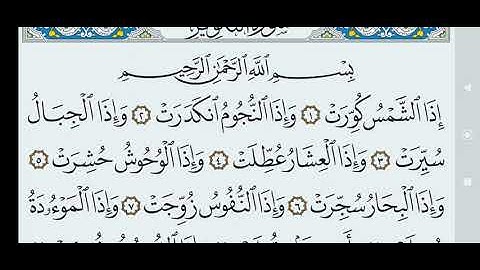 بِسْمِ ٱللَّهِ ٱلرَّحْمَٰنِ ٱلرَّحِيمِ
إِذَا ٱلشَّمْسُ كُوِّرَتْ ١ وَإِذَا ٱلنُّجُومُ ٱنكَدَرَتْ ٢ وَإِذَا ٱلْجِبَالُ
سُيِّرَتْ ٣ وَإِذَا ٱلْعِشَارُ عُطِّلَتْ ٤ وَإِذَا ٱلْوُحُوشُ حُشِرَتْ ٥
وَإِذَا ٱلْبِحَارُ سُجِّرَتْ ٦ وَإِذَا ٱلنُّفُوسُ زُوِّجَتْ ٧ وَإِذَا ٱلْمَوْءُۥدَةُ